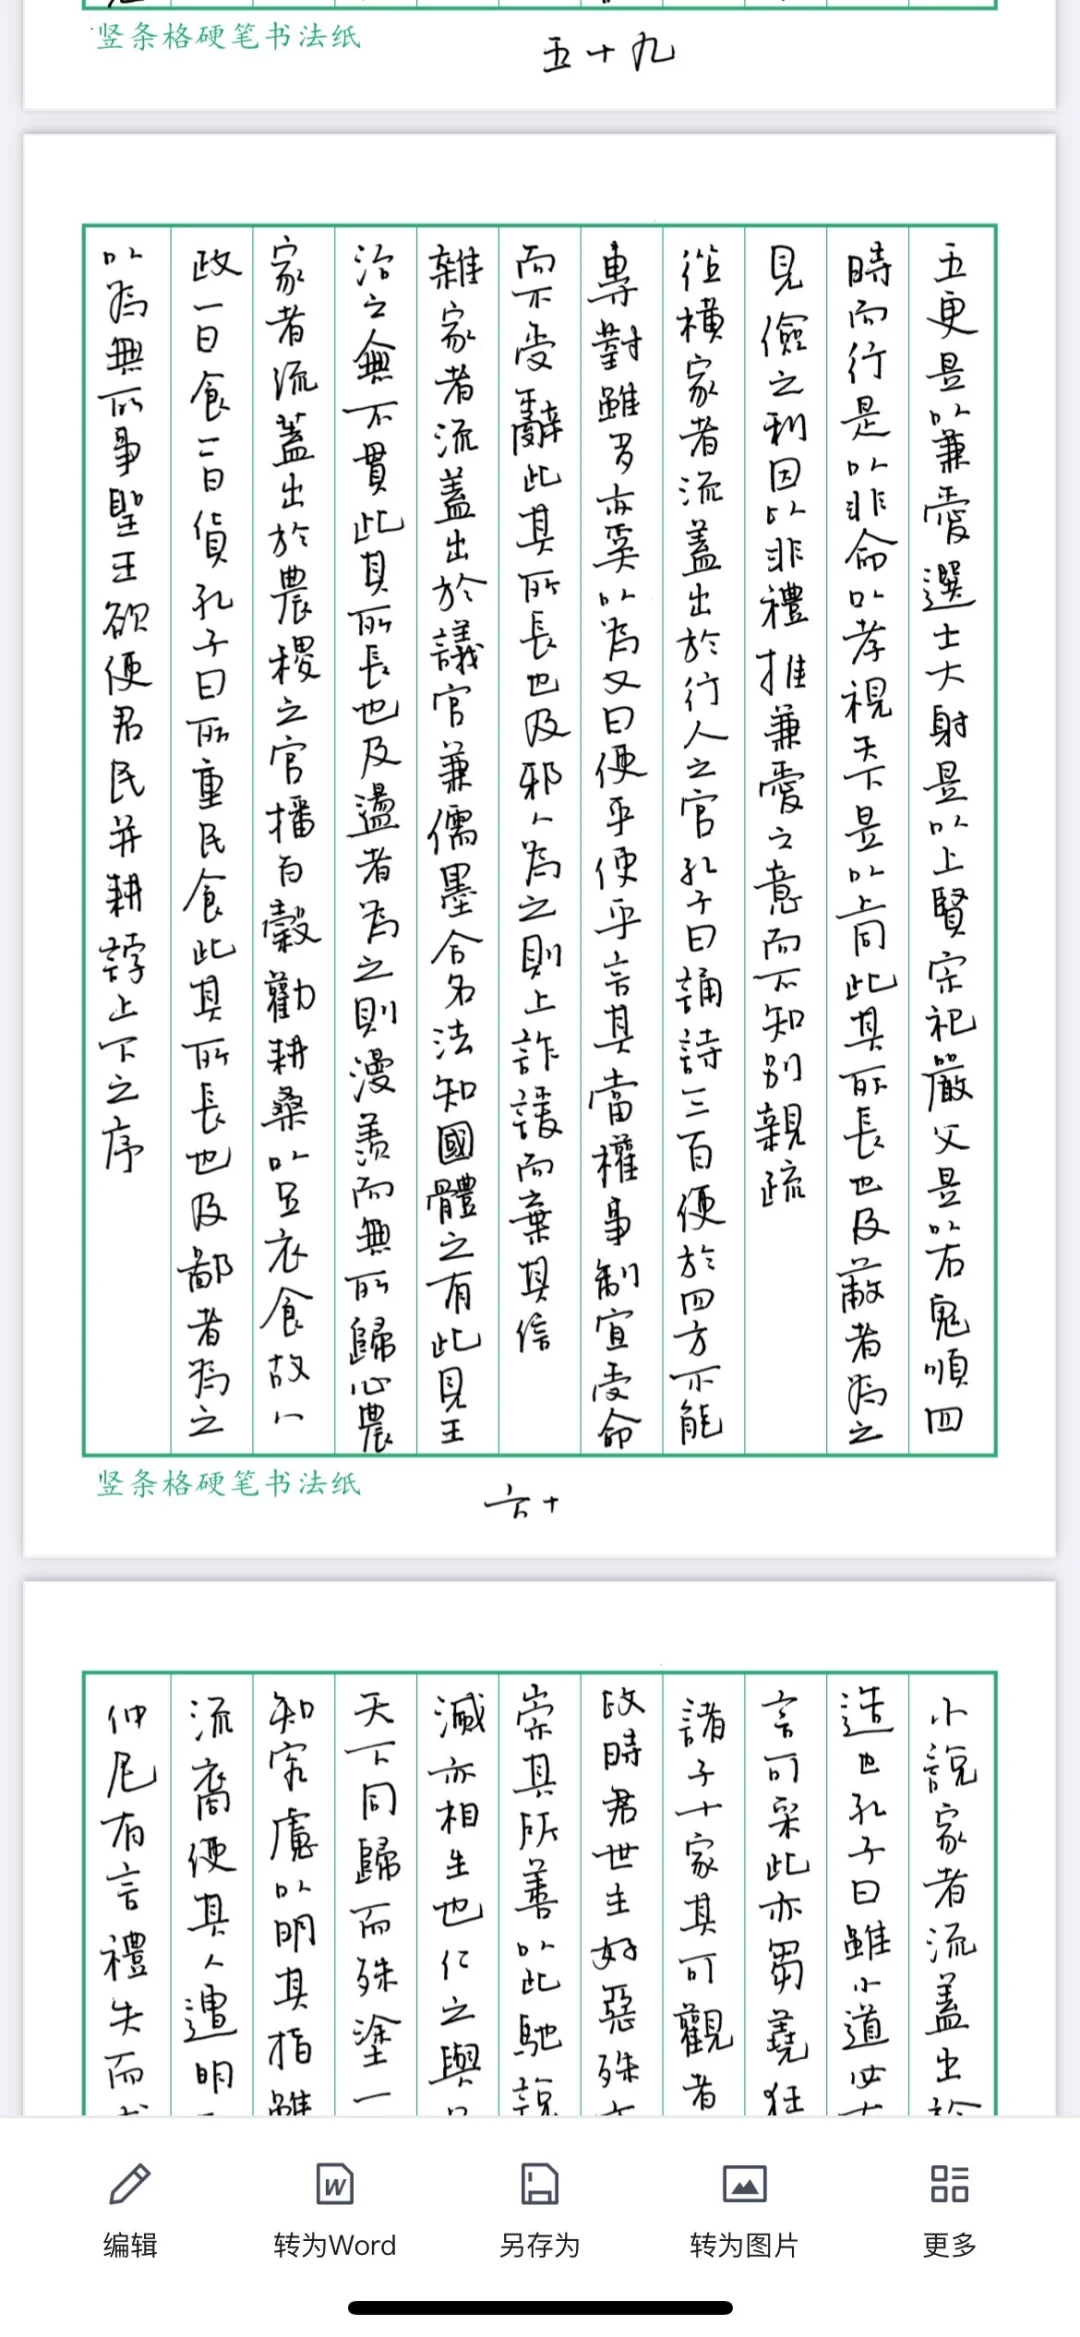 竖条格硬笔书法纸
五十九
五更是以兼愛選士大射是以上賢宗祀嚴父是以右鬼順四
時而行是以非命以孝視天下是以上同此其所長也及蔽者為之
見儉之利因以非禮推兼愛之意而不知別親疏
從橫家者流蓋出於行人之官孔子曰誦詩三百使於四方不能
專對雖多亦奚以為又曰使乎使乎言其當權事制宜受命
而不受辭此其所長也及邪人為之則上詐諼而棄其信
雜家者流蓋出於議官兼儒墨合名法知國體之有此見王
治之無不貫此其所長也及盪者為之則漫羨而無所歸心農
家者流蓋出於農稷之官播百穀勸耕桑以足衣食故八
政一曰食二曰貨孔子曰所重民食此其所長也及鄙者為之
以為無所事聖王欲使君民并耕誖上下之序
竖条格硬笔书法纸
六十
小說家者流蓋出於
造也孔子曰雖小道必有
言可采此亦芻蕘狂
諸子十家其可觀者
政時君世主好惡殊方
崇其所善以此馳說
滅亦相生也仁之與
天下同歸而殊塗一
知究慮以明其指雖
流裔使其人遭明
仲尼有言禮失而求
编辑
转为Word
另存为
转为图片
更多